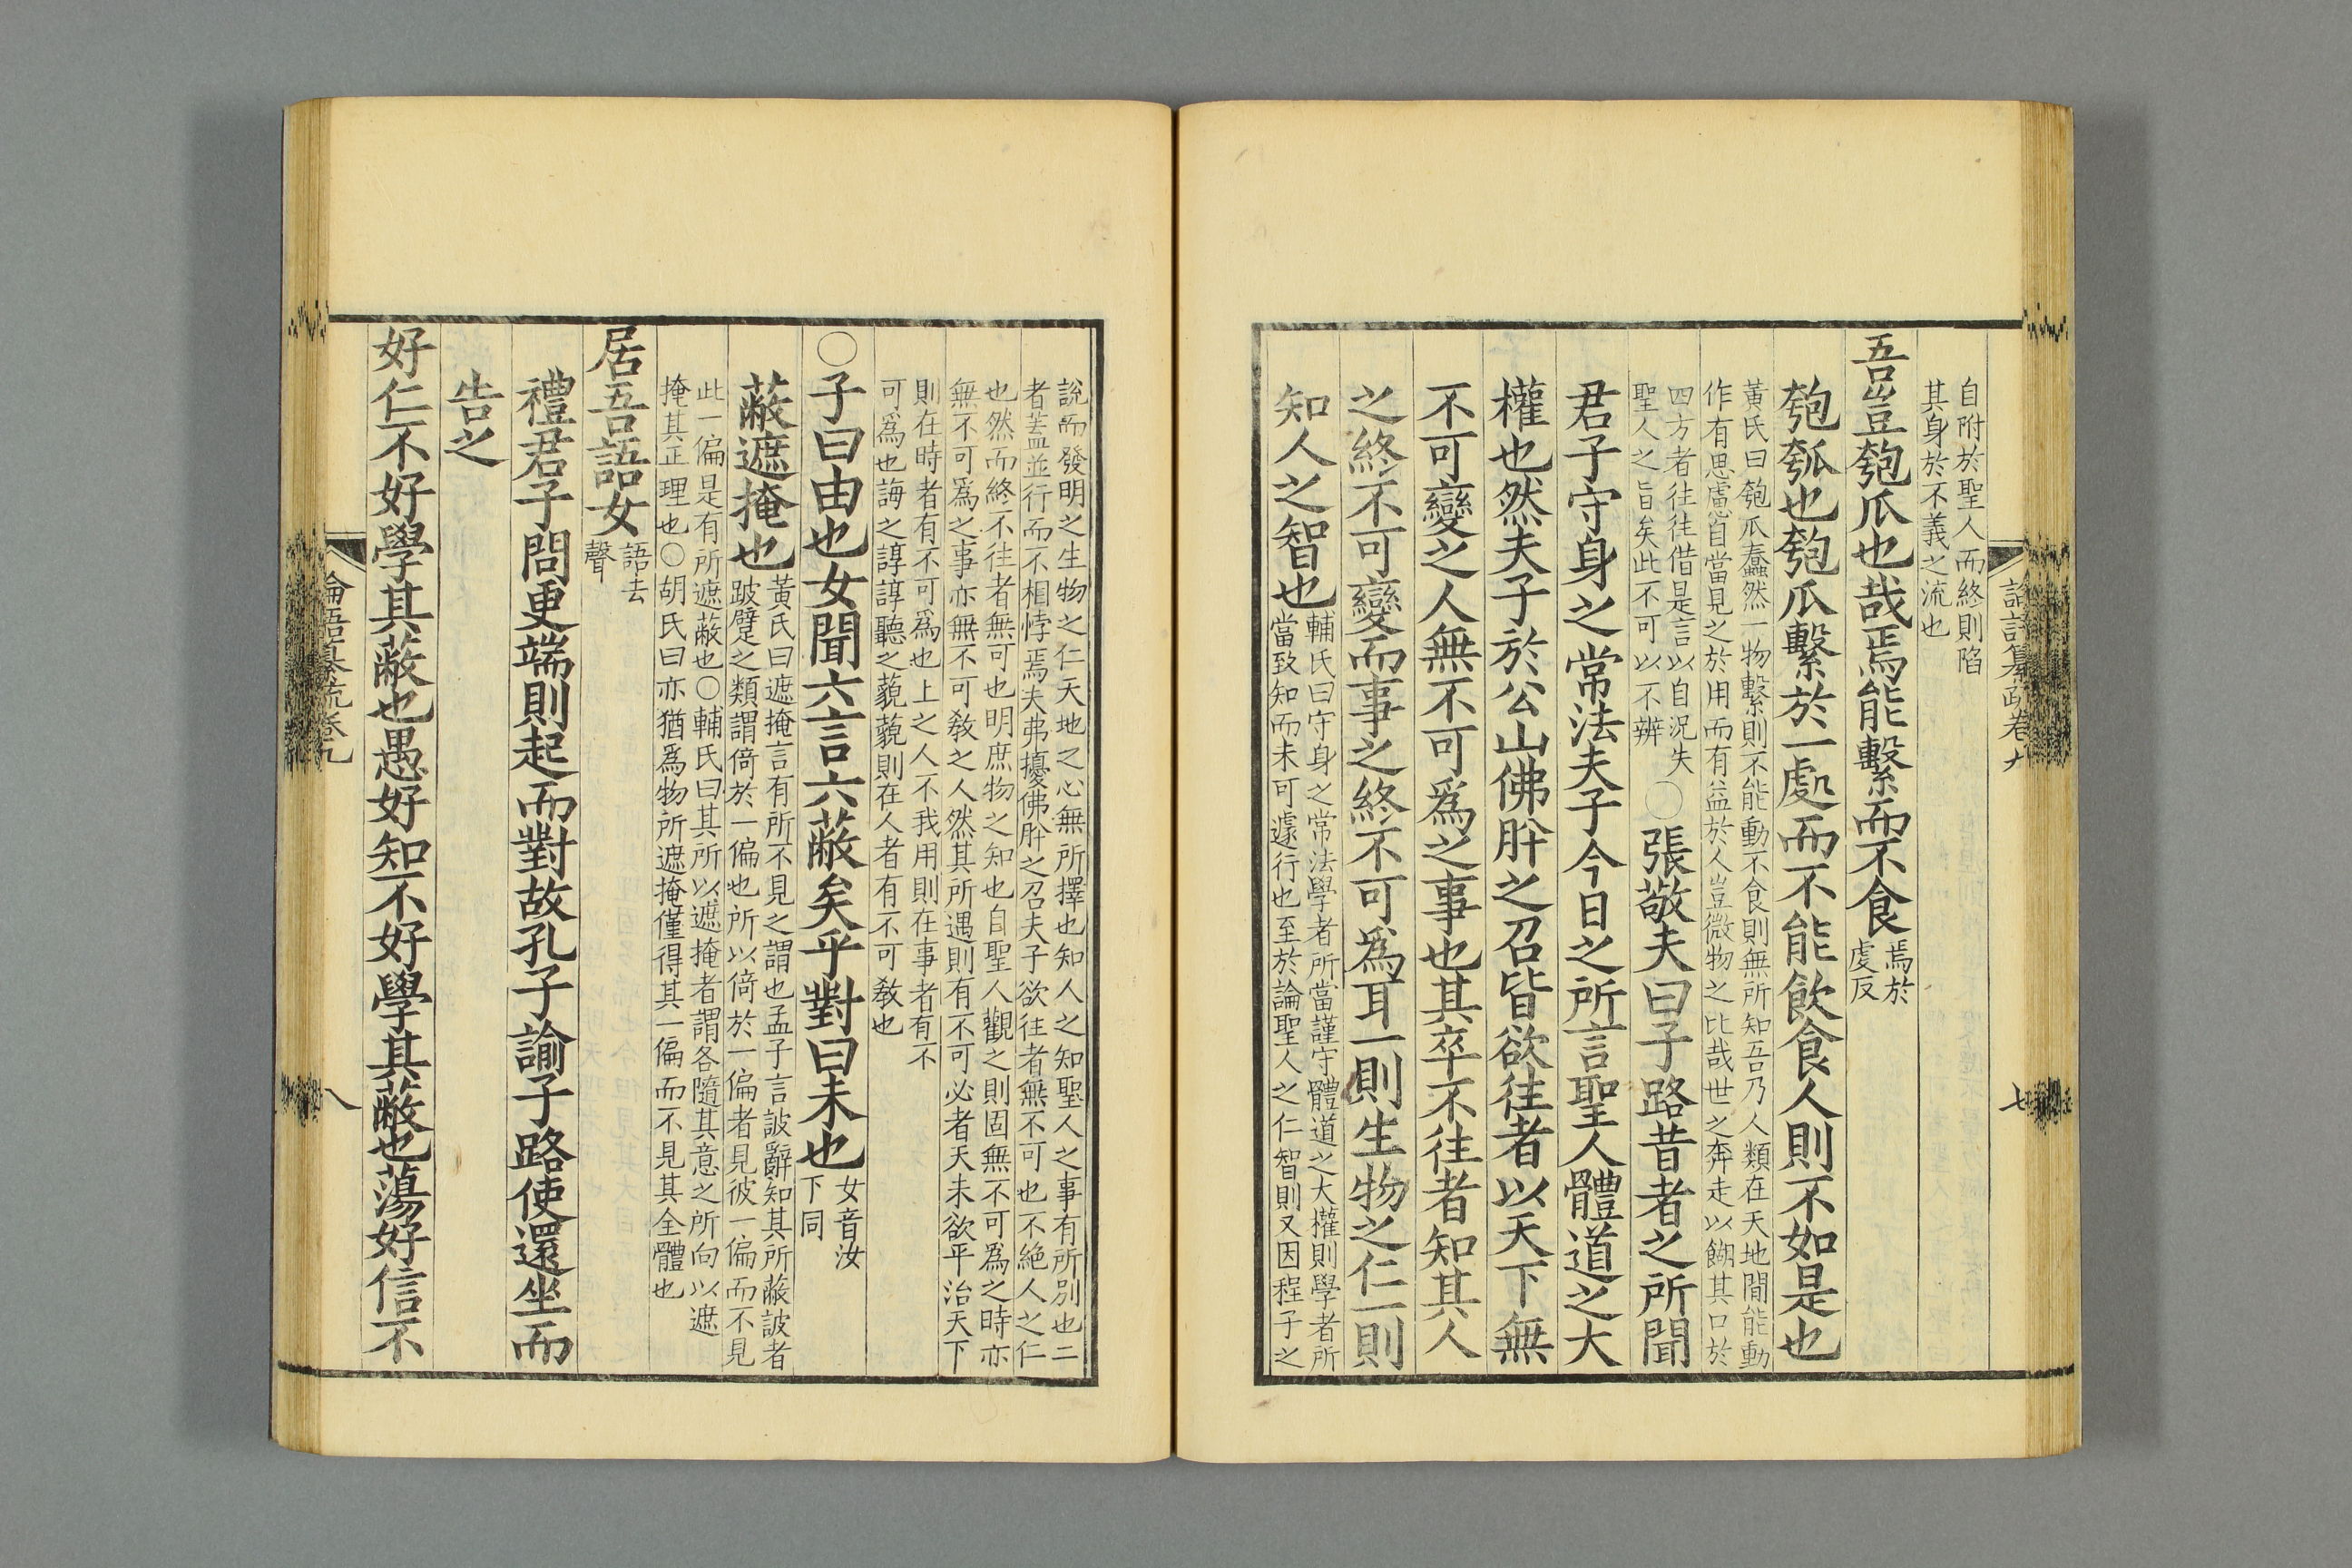 論語纂疏卷九
七
自附於聖人而終則陷
其身於不義之流也
吾豈匏瓜也哉焉能繫而不食
焉於
虔反
匏瓠也匏瓜繫於一處而不能飲食人則不如是也
黃氏曰匏瓜蠢然一物繫則不能動不食則無所知吾乃人類在天地間能動
作有思慮自當見之於用而有益於人豈微物之比哉世之奔走以餬其口於
四方者往往借是言以自況失
聖人之旨矣此不可以不辨
○張敬夫曰子路昔者之所聞
君子守身之常法夫子今日之所言聖人體道之大
權也然夫子於公山佛肸之召皆欲往者以天下無
不可變之人無不可爲之事也其卒不往者知其人
之終不可變而事之終不可爲耳一則生物之仁一則
知人之智也
輔氏曰守身之常法學者所當謹守體道之大權則學者所
當致知而未可遽行也至於論聖人之仁智則又因程子之
說而發明之生物之仁天地之心無所擇也知人之知聖人之事有所別也二
者蓋並行而不相悖焉夫弗擾佛肸之召夫子欲往者無不可也不絶人之仁
也然而終不往者無可也明庶物之知也自聖人觀之則固無不可爲之時亦
無不可爲之事亦無不可敎之人然其所遇則有不可必者天未欲平治天下
則在時者有不可爲也上之人不我用則在事者有不
可爲也誨之諄諄聽之藐藐則在人者有不可敎也
○子曰由也女聞六言六蔽矣乎對曰未也
女音汝
下同
蔽遮掩也
黃氏曰遮掩言有所不見之謂也孟子言詖辭知其所蔽詖者
跛躄之類謂倚於一偏也所以倚於一偏者見彼一偏而不見
此一偏是有所遮蔽也○輔氏曰其所以遮掩者謂各隨其意之所向以遮
掩其正理也○胡氏曰亦猶爲物所遮掩僅得其一偏而不見其全體也
居吾語女
語去
聲
禮君子問更端則起而對故孔子諭子路使還坐而
告之
好仁不好學其蔽也愚好知不好學其蔽也蕩好信不
論語纂疏卷九
八